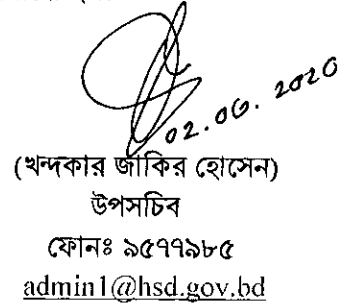 02.06.2020
(খন্দকার জাকির হোসেন)
উপসচিব
ফোনঃ ৯৫৭৭৯৮৫
admin1@hsd.gov.bd